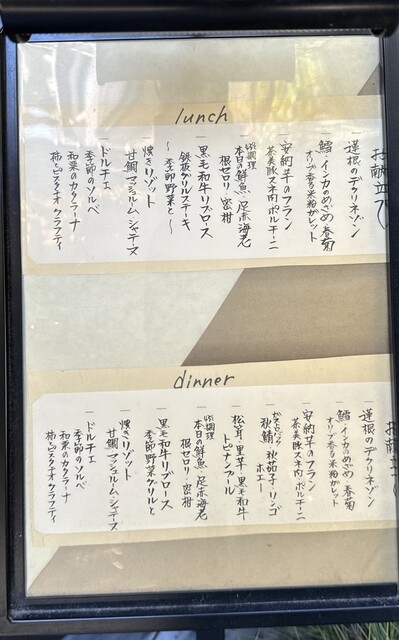 lunch
お献立て
蓮根のデクリネゾン
鱈・インカのめざめ 春菊
オリーブ香る米粉ガレット
安納芋のフラン
茶美豚スネ肉 ポルチーニ
本日の鮮魚 足赤海老
根セロリ 蜜柑
黒毛和牛リブロース
鉄板グリルステーキ
〜季節野菜と〜
焼きリゾット
甘鯛 マッシュルーム シャテーヌ
ドルチェ
季節のソルベ
和栗のカタラーナ
柿とピスタチオ クラフティ
dinner
お献立て
蓮根のデクリネゾン
鱈・インカのめざめ 春菊
オリーブ香る米粉ガレット
安納芋のフラン
茶美豚スネ肉 ポルチーニ
秋鯖 秋茄子・リンゴ
ホエー
松茸・里芋 黒毛和牛
トピナンブール
本日の鮮魚 足赤海老
根セロリ 蜜柑
黒毛和牛リブロース
季節野菜グリルと
焼きリゾット
甘鯛 マッシュルーム シャテーヌ
ドルチェ
季節のソルベ
和栗のカタラーナ
柿とピスタチオ クラフティ